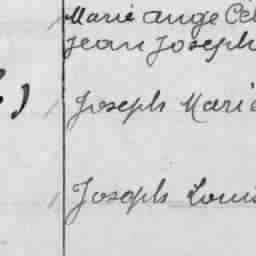 Marie Ange Cel
Jean Joseph
Joseph Marie
Joseph Louis